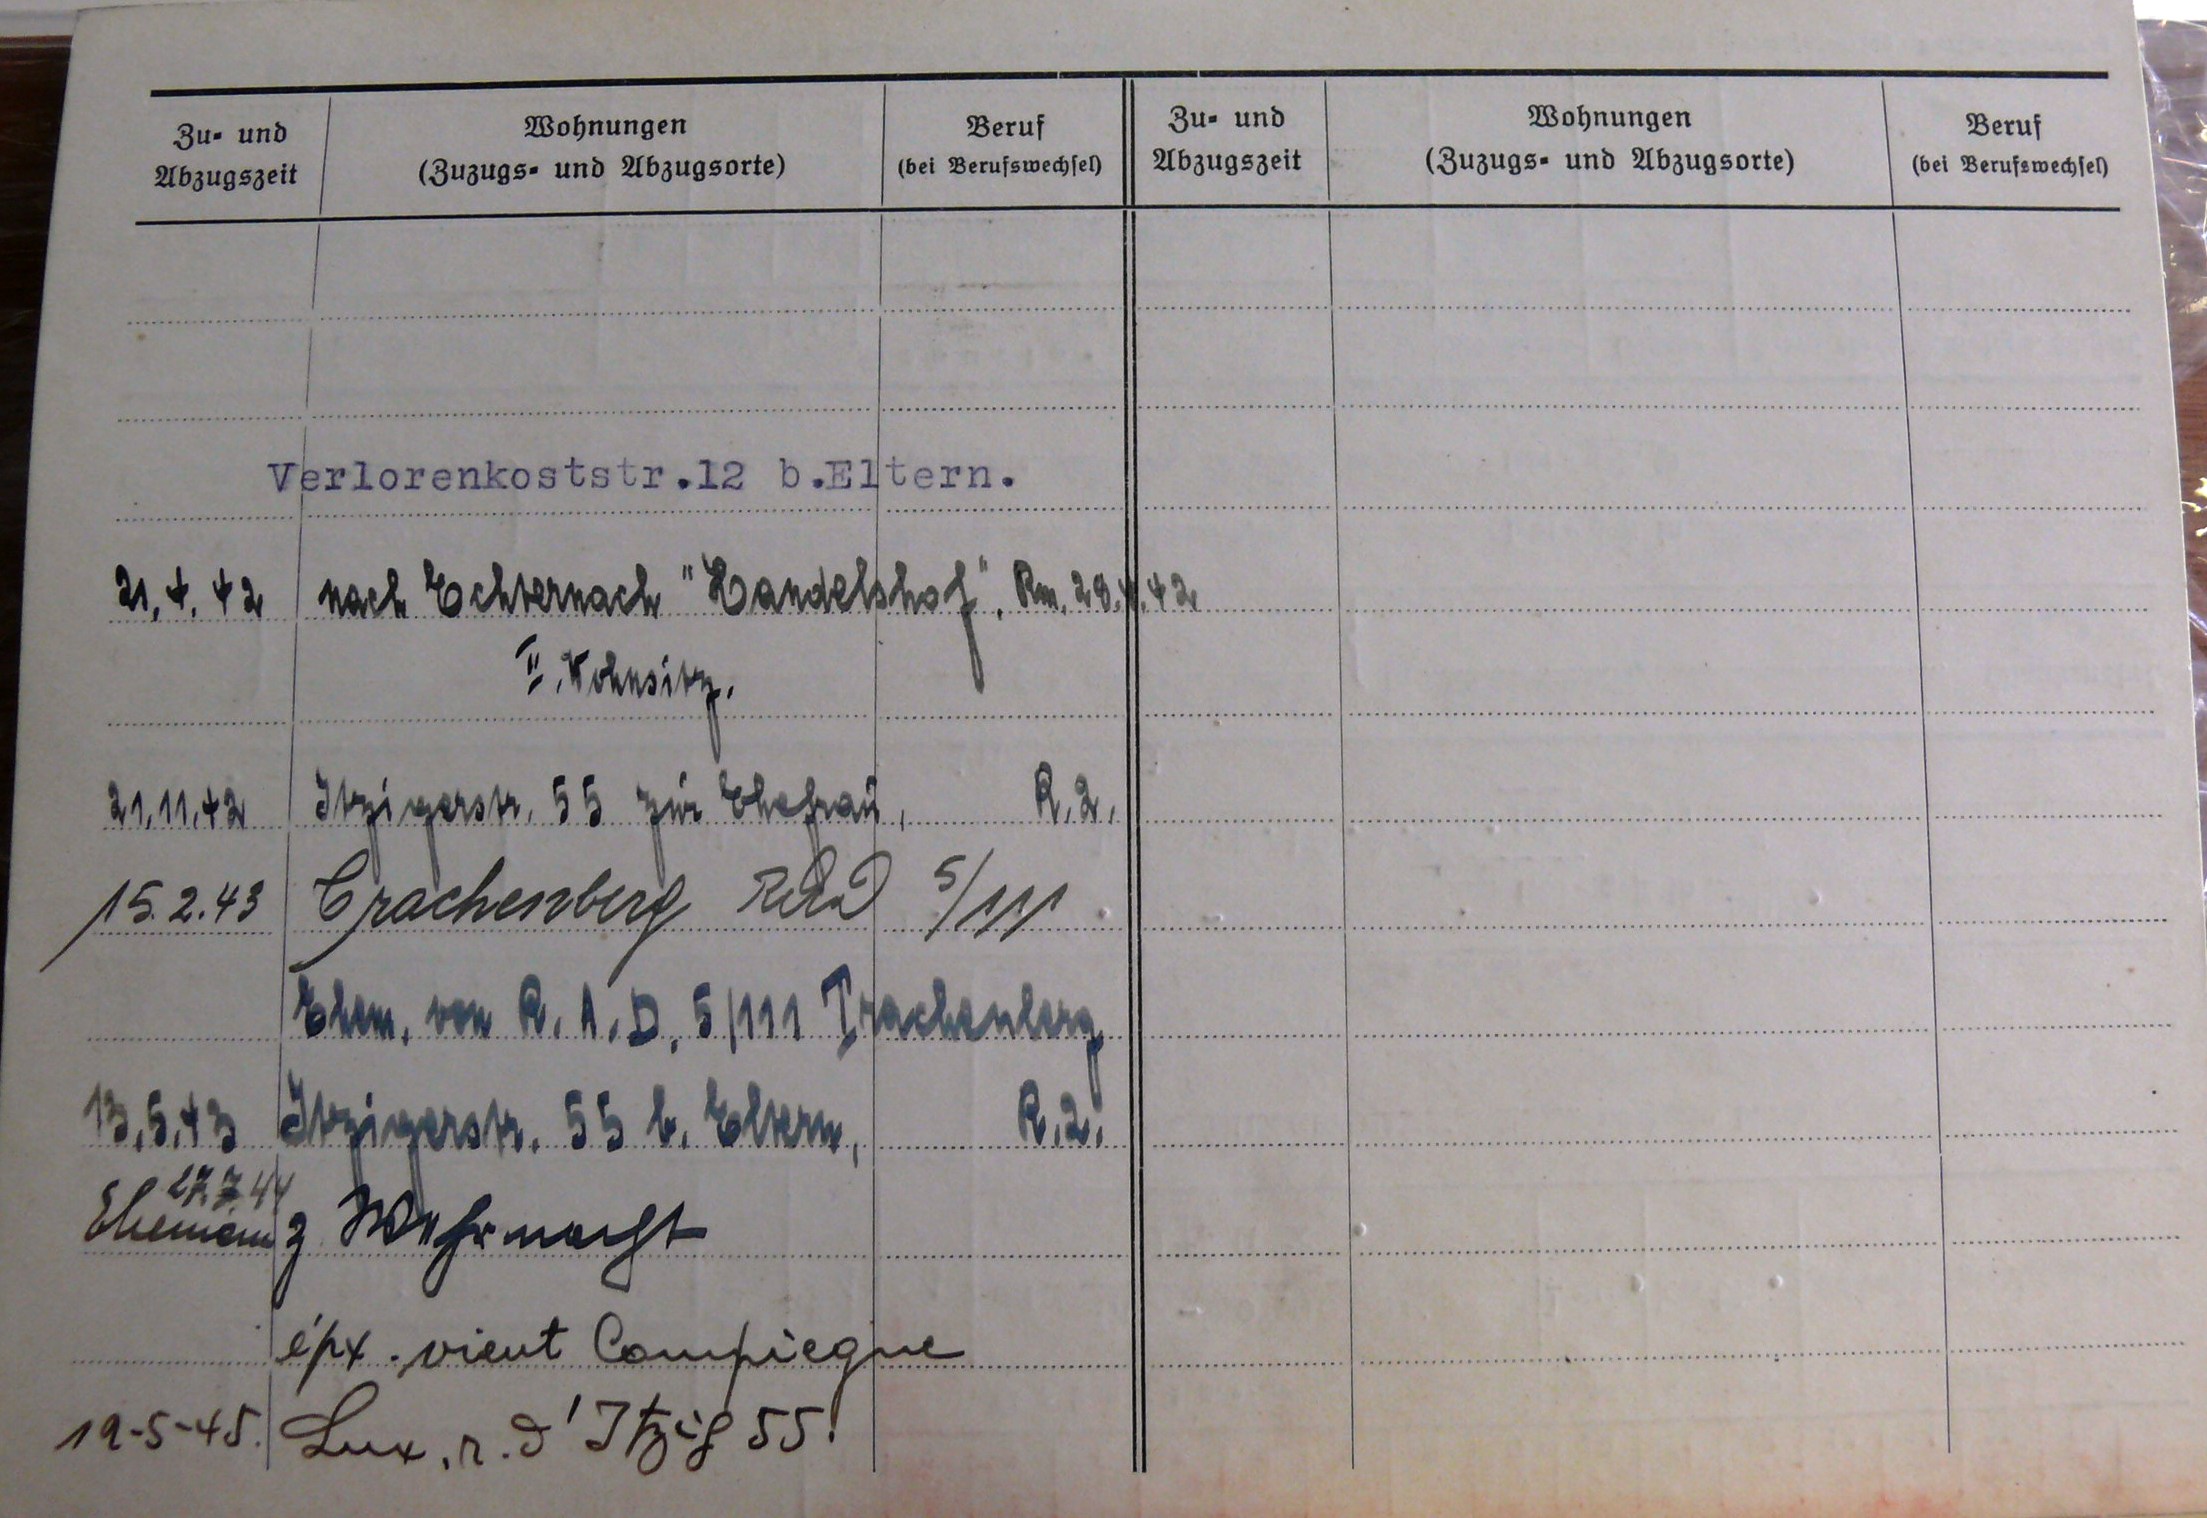 Zu- und Abzugszeit
Wohnungen (Zuzugs- und Abzugsorte)
Beruf (bei Berufswechsel)
Zu- und Abzugszeit
Wohnungen (Zuzugs- und Abzugsorte)
Beruf (bei Berufswechsel)
Verlorenkoststr.12 b.Eltern.
21.4.42 nach Echternach "Handelshof". Rm. 28.4.42
II. Wohnsitz.
21.11.42 Itzigerstr. 55 zur Ehefrau, R.2.
15.2.43 Trachenberg RAD 5/111
Ehem. von R.A.D. 5/111 Trachenberg
13.5.43 Itzigerstr. 55 b. Eltern, R.2.
27.7.44
Ehemann z Wehrmacht
épx. vient Compiegne
19-5-45. Lux. r. d'Itzig 55.